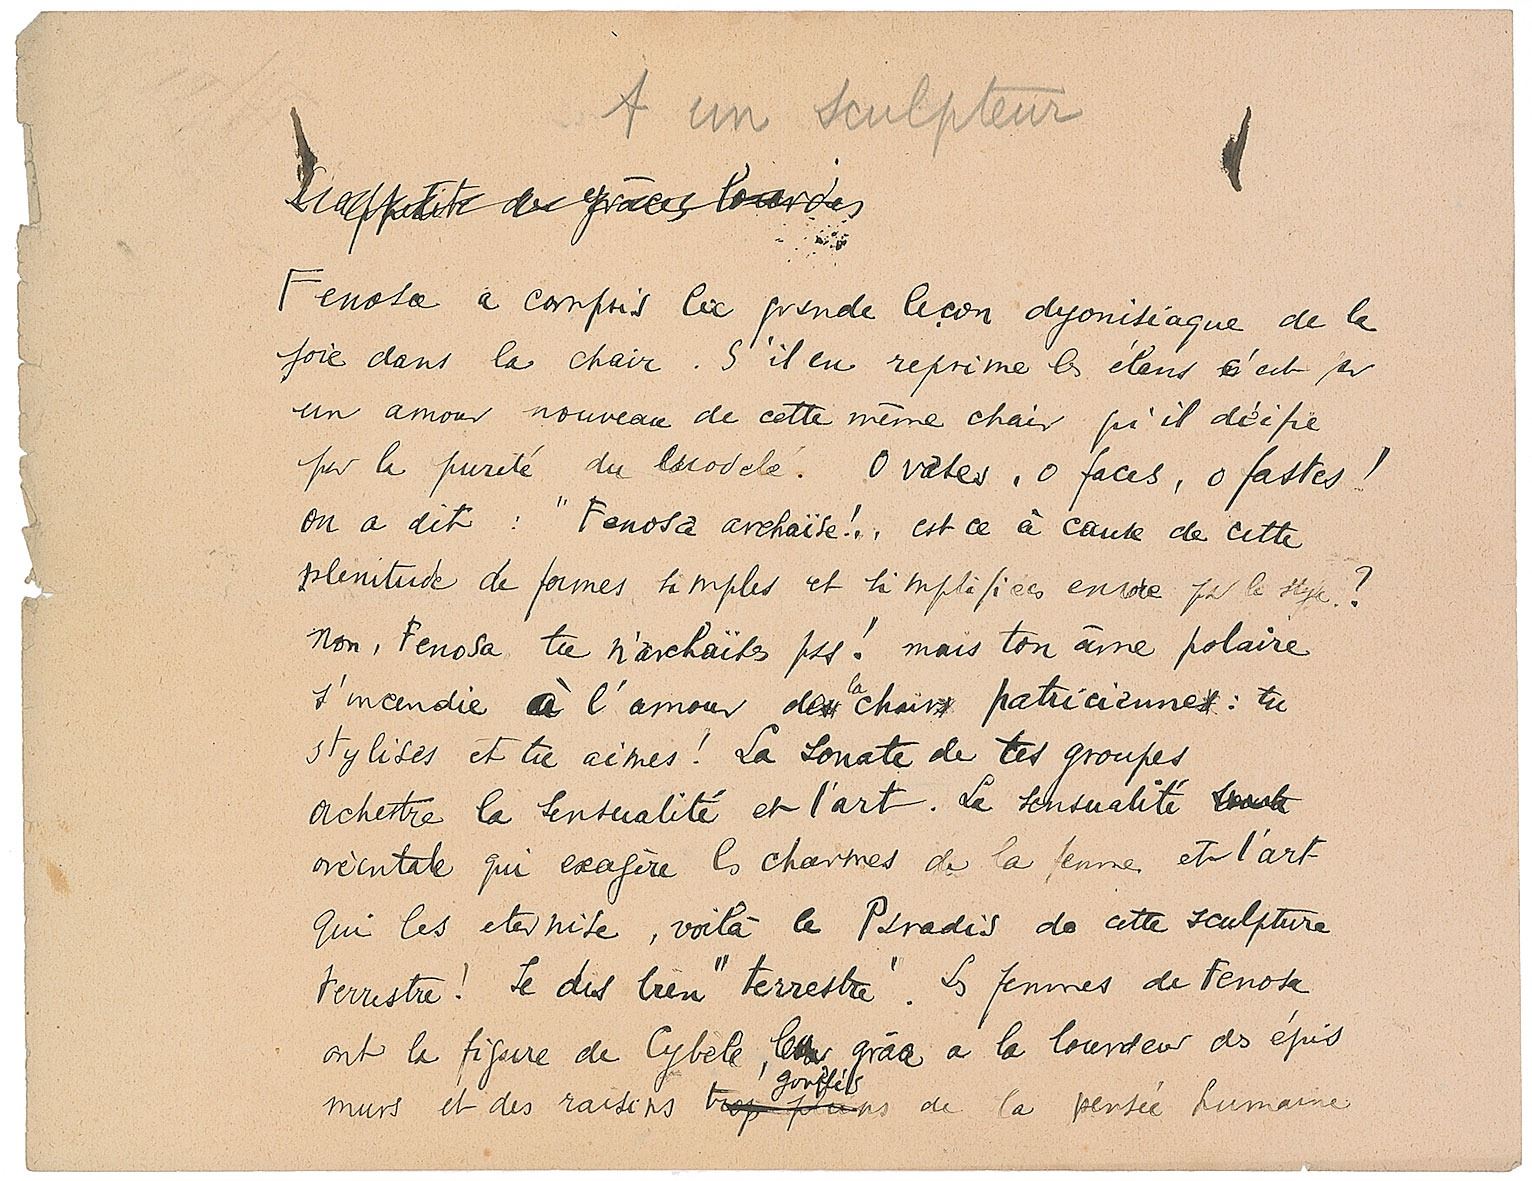 A un sculpteur
L'appétit des grâces lourdes
Fenosa a compris la grande leçon dyonisiaque de la
joie dans la chair. S'il en reprime les élans c'est par
un amour nouveau de cette même chair qu'il
par la pureté du modelé. O vases, o faces, o fastes !
on a dit : " Fenosa archaïse !.. est ce à cause de cette
plenitude de formes simples et simplifiées encore par le style ?
non, Fenosa tu n'archaïses pas ! mais ton âme polaire
s'incendie à l'amour des la chairs patriciennes : tu
stylises et tu aimes ! La sonate de tes groupes
orchestre la sensualité et l'art. La sensualité
orientale qui exagère les charmes de la femme et l'art
qui les eternise, voilà le Paradis de cette sculpture
terrestre ! Je dis bien " terrestre ". Les femmes de Fenosa
ont la figure de Cybèle, leur grâce a la lourdeur des épis
gonflés
murs et des raisins trop pleins de la pensée humaine